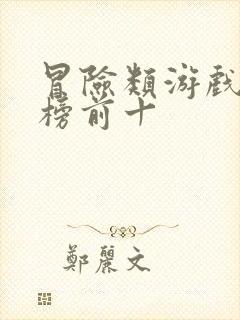 冒險類游戲
榜前十
鄭麗文